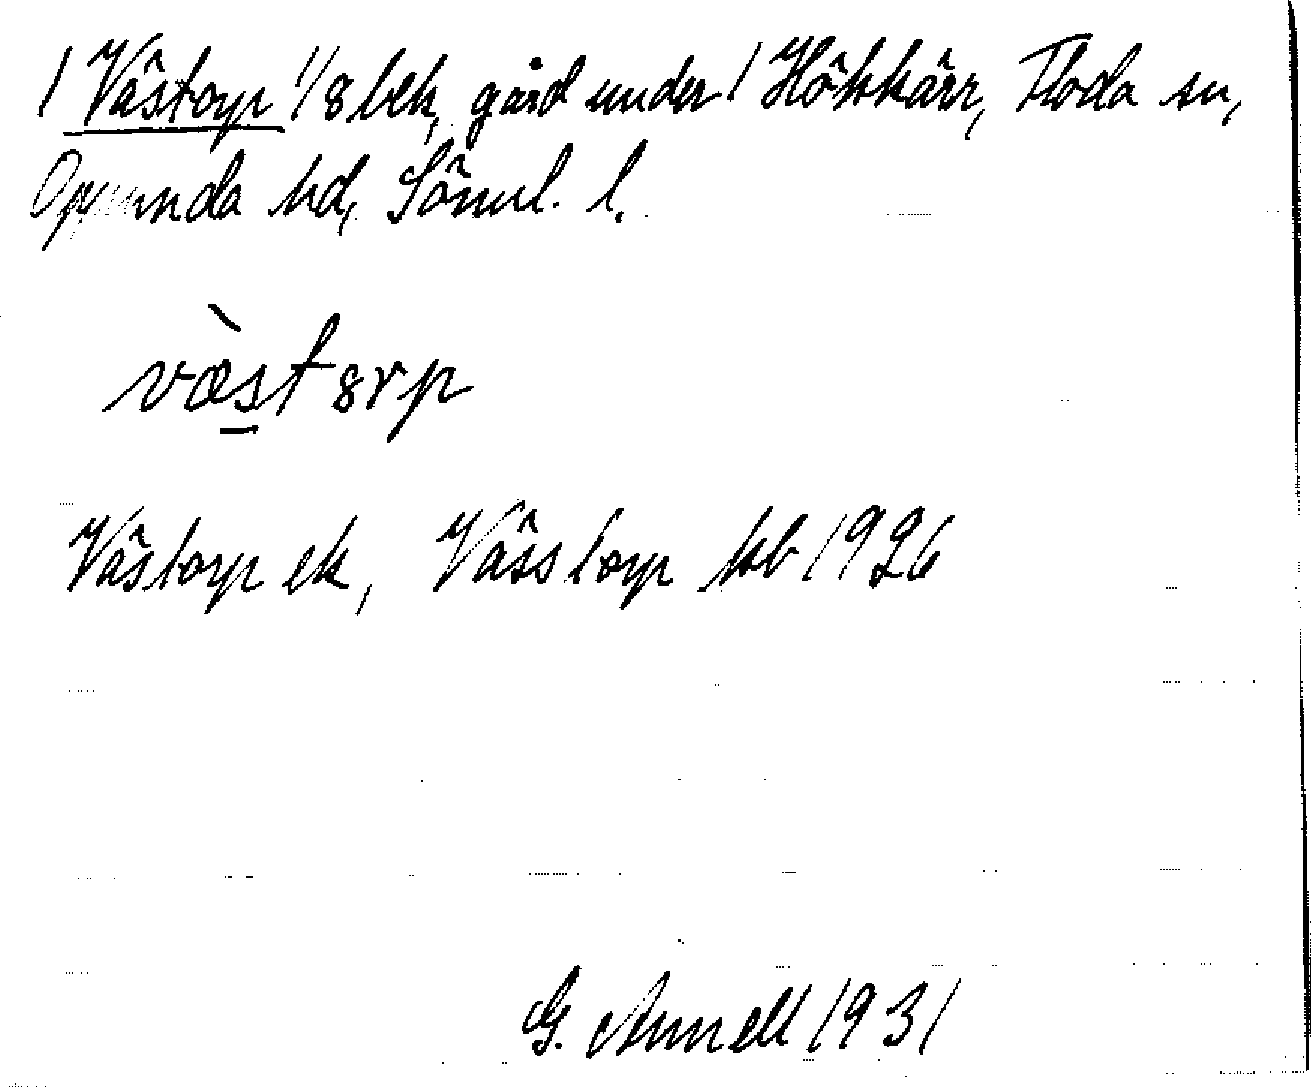 1 Västorp 1/8 lek, gård under 1 Hökkärr, Floda sn,
Oppunda hd, Söml. l.
væ̀st8rp
Västorp ek, Vässtorp kb 1926
G. Annell 1931